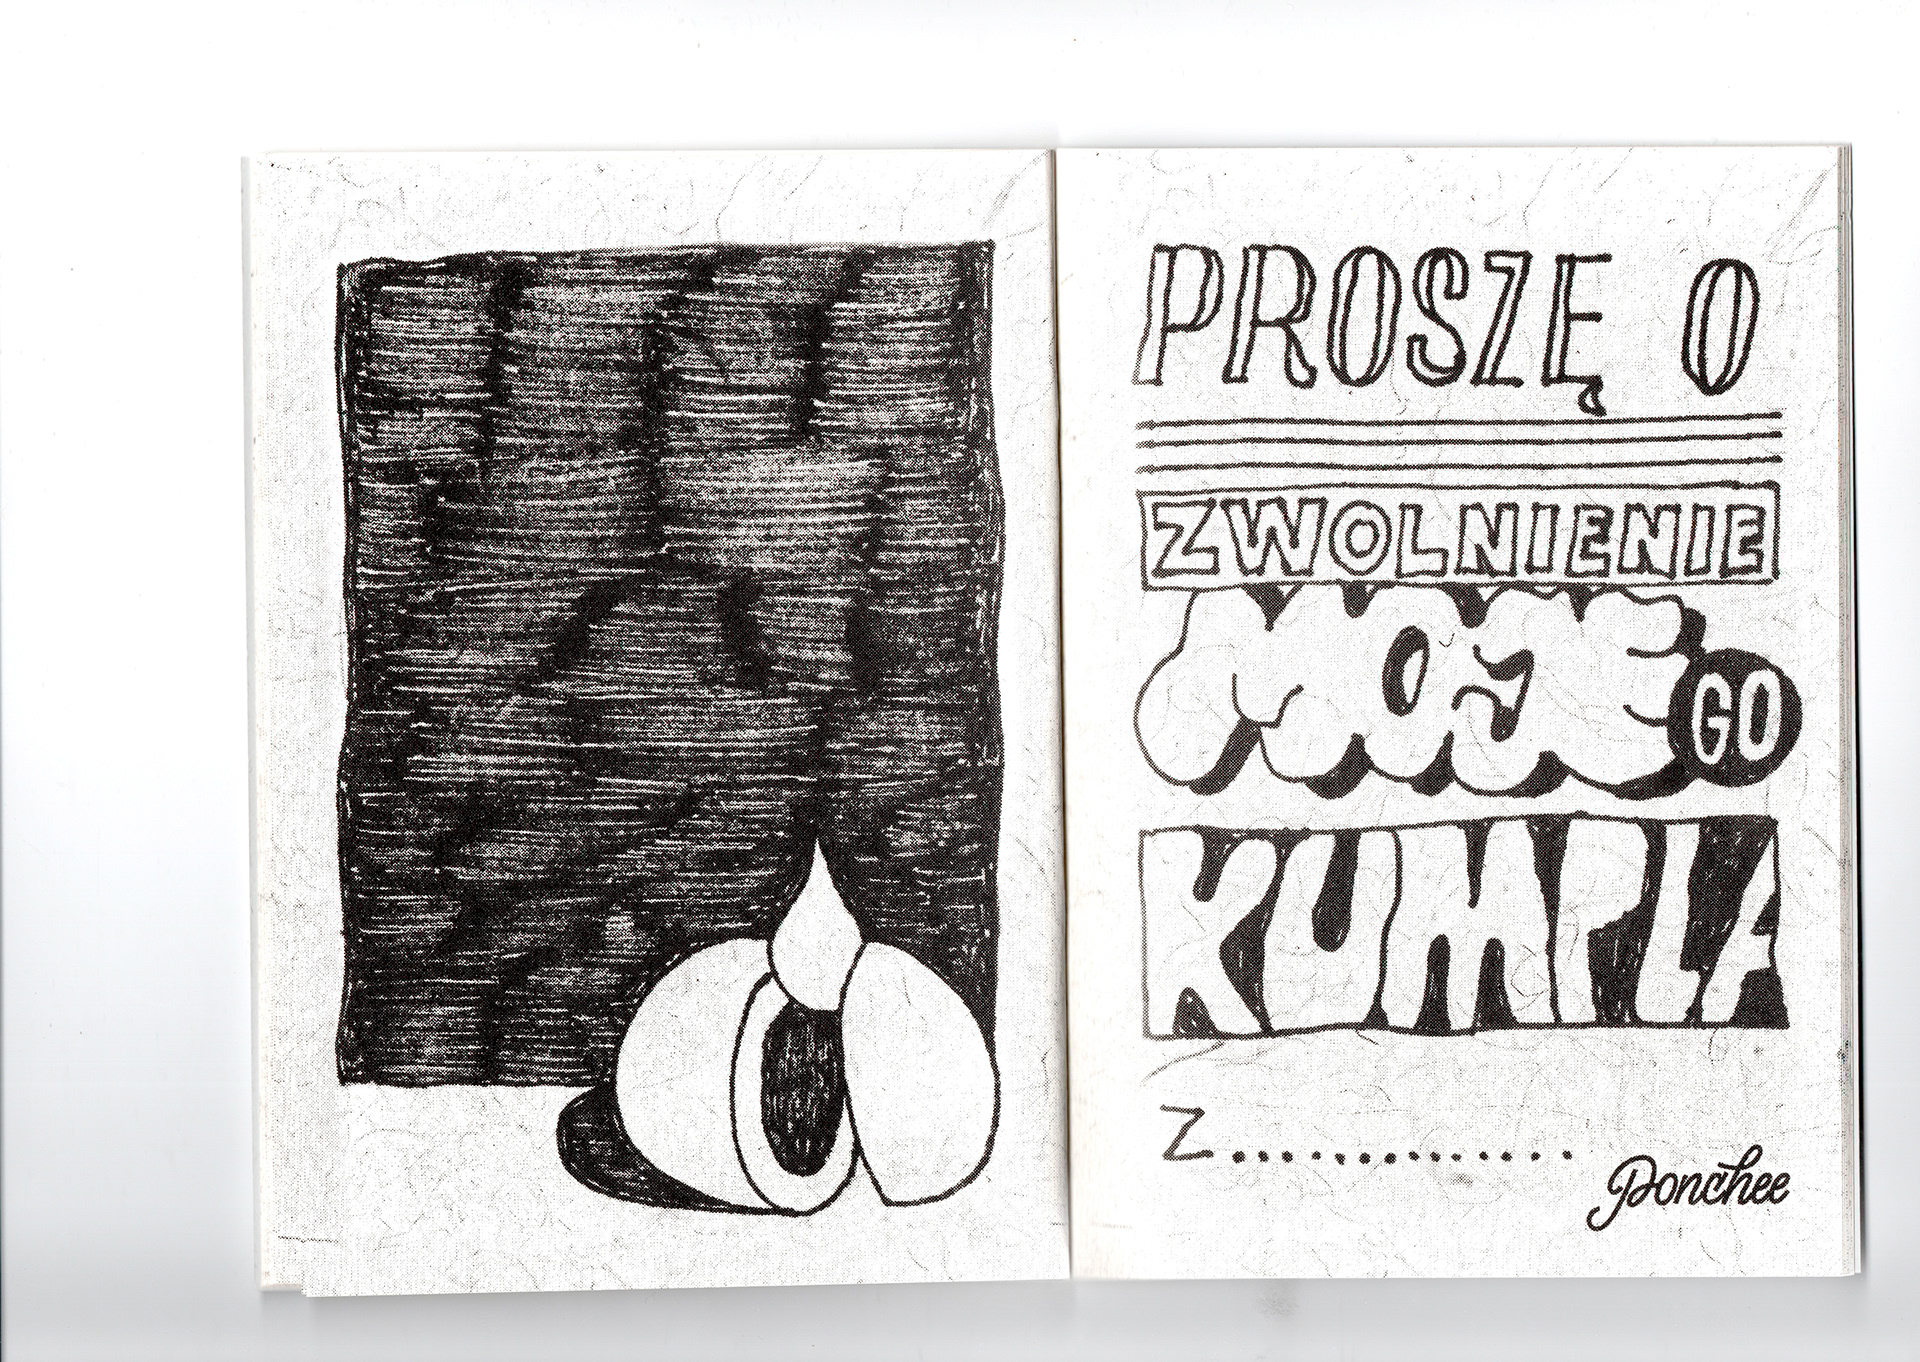 PROSZĘ O
ZWOLNIENIE
MOJE GO
KUMPLA
Z..............
Ponchee